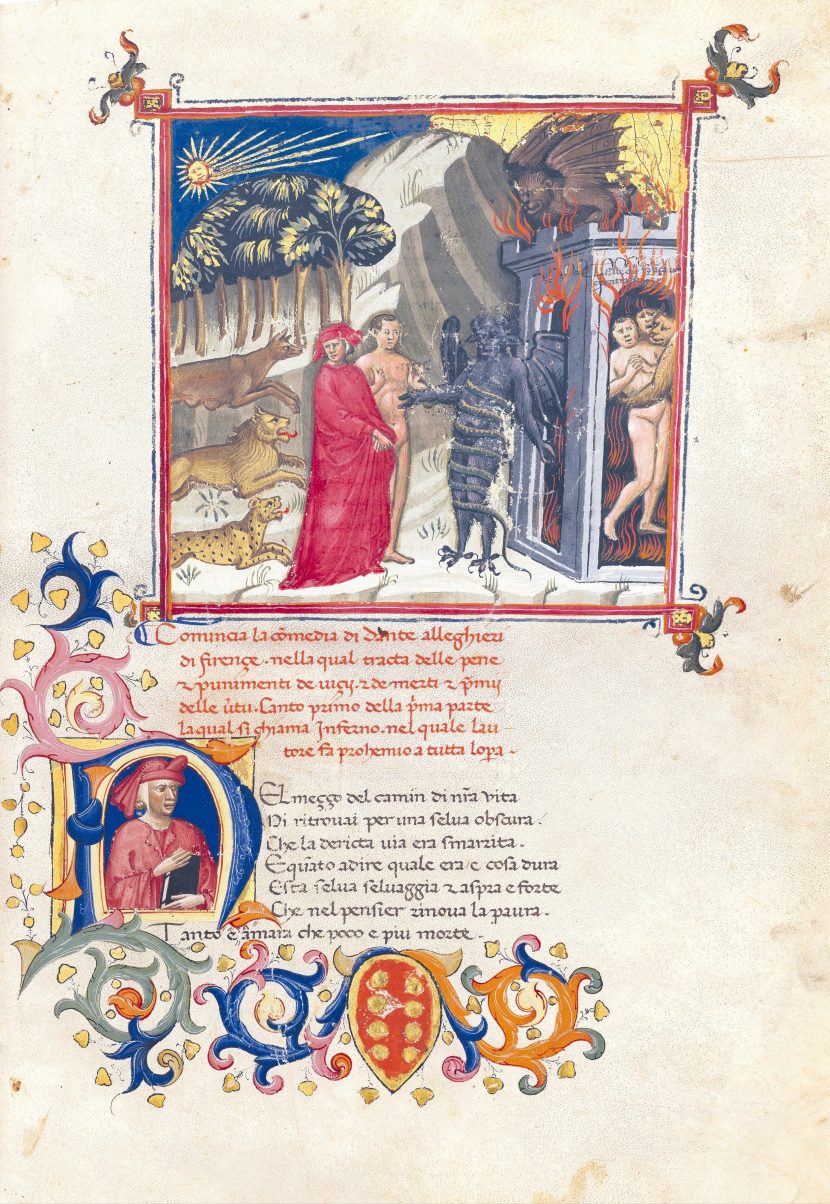 Comincia la cōmedia di dante alleghieri
di firençe · nella qual tracta delle pene
⁊ punimenti de viçij · ⁊ de merti ⁊ p̄mij
delle v̄tu · Canto primo della p̄ma parte
la qual si chiama Inferno · nel quale lau–
tore fa prohemio a tutta lop̄a ·
NEL meçço del camin di nr̄a vita
Mi ritrouai per una selua obscura ·
Che la diricta via era smarrita ·
E quāto adire quale era · e cosa dura
Esta selua seluaggia ⁊ aspra e forte
Che nel pensier rinoua la paura ·
Tanto ē amara che poco e piu morte ·